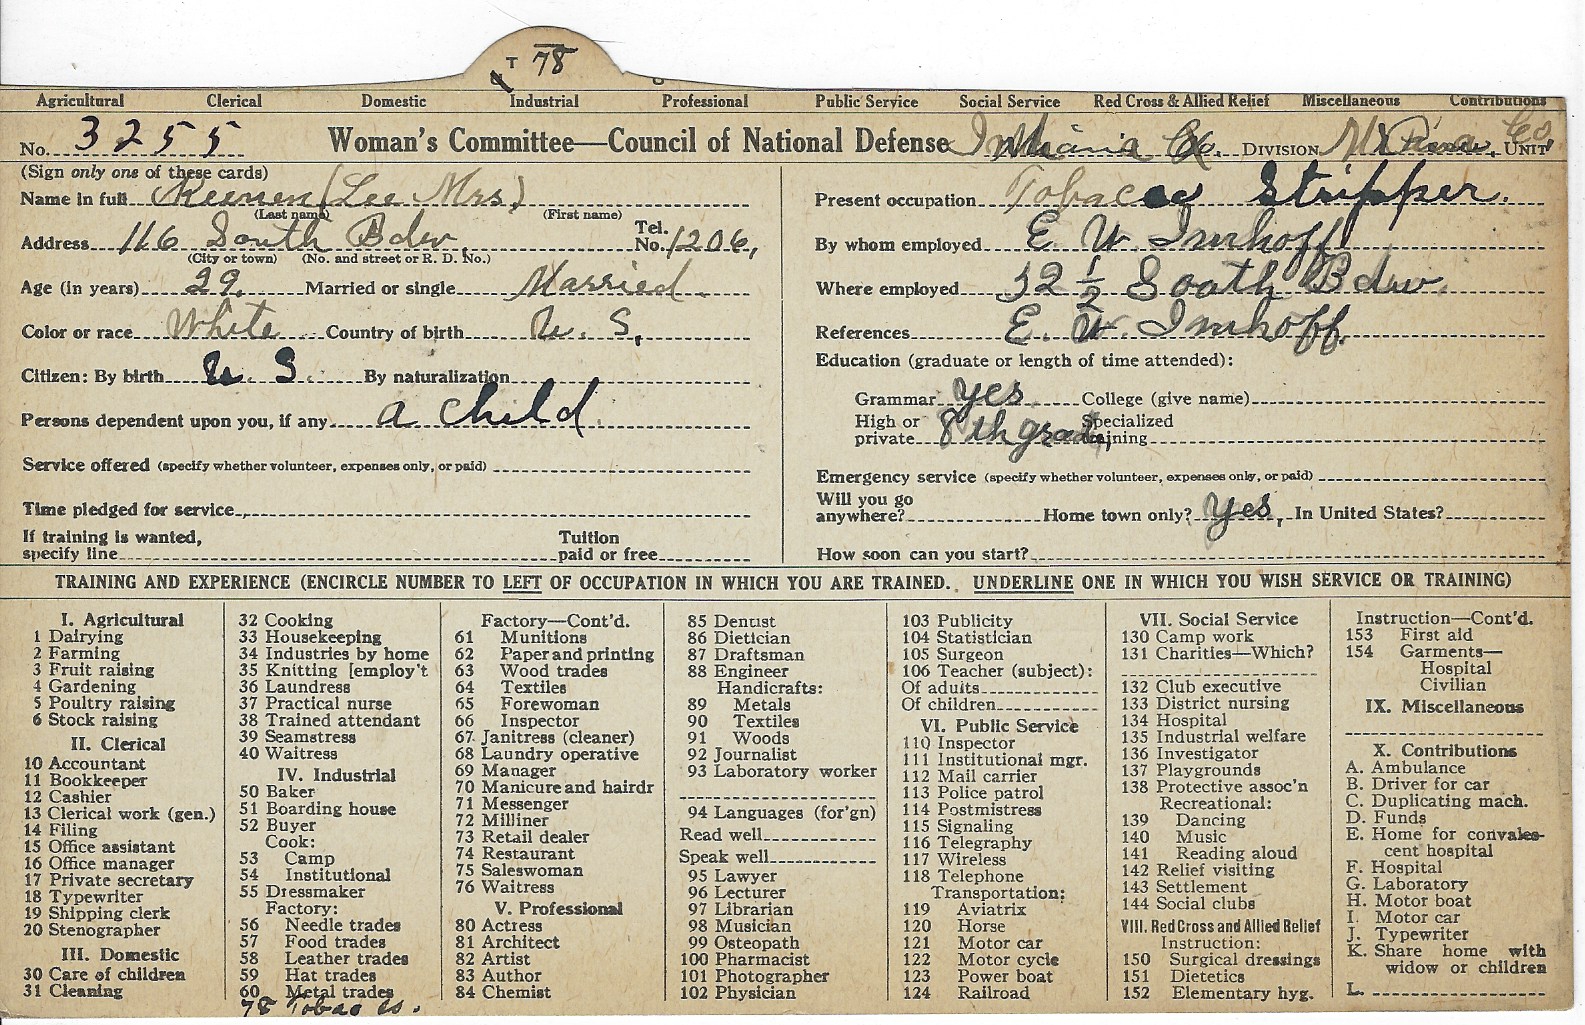 T 78
Agricultural Clerical Domestic Industrial Professional Public Service Social Service Red Cross & Allied Relief Miscellaneous Contributions
No. 3255 Woman's Committee—Council of National Defense Indiana DIVISION Co. UNIT
(Sign only one of these cards)
Name in full Keenen (Lee Mrs)
(Last name) (First name)
Address 116 South Bdw. Tel. No. 1206,
(City or town) (No. and street or R. D. No.)
Age (in years) 29. Married or single Married.
Color or race White Country of birth U. S.
Citizen: By birth U. S. By naturalization
Persons dependent upon you, if any a child.
Service offered (specify whether volunteer, expenses only, or paid)
Time pledged for service
If training is wanted, specify line Tuition paid or free
Present occupation Tobacco Stripper.
By whom employed E. W. Imhoff
Where employed 32 1/2 South Bdw.
References E. W. Imhoff.
Education (graduate or length of time attended):
Grammar yes College (give name)
High or private 8th grade, Specialized training
Emergency service (specify whether volunteer, expenses only, or paid)
Will you go anywhere? Home town only? Yes, In United States?
How soon can you start?
TRAINING AND EXPERIENCE (ENCIRCLE NUMBER TO LEFT OF OCCUPATION IN WHICH YOU ARE TRAINED. UNDERLINE ONE IN WHICH YOU WISH SERVICE OR TRAINING)
I. Agricultural
1 Dairying
2 Farming
3 Fruit raising
4 Gardening
5 Poultry raising
6 Stock raising
II. Clerical
10 Accountant
11 Bookkeeper
12 Cashier
13 Clerical work (gen.)
14 Filing
15 Office assistant
16 Office manager
17 Private secretary
18 Typewriter
19 Shipping clerk
20 Stenographer
III. Domestic
30 Care of children
31 Cleaning
32 Cooking
33 Housekeeping
34 Industries by home
35 Knitting [employ't
36 Laundress
37 Practical nurse
38 Trained attendant
39 Seamstress
40 Waitress
IV. Industrial
50 Baker
51 Boarding house
52 Buyer
Cook:
53 Camp
54 Institutional
55 Dressmaker
Factory:
56 Needle trades
57 Food trades
58 Leather trades
59 Hat trades
60 Metal trades
78 Tobac
Factory—Cont'd.
61 Munitions
62 Paper and printing
63 Wood trades
64 Textiles
65 Forewoman
66 Inspector
67 Janitress (cleaner)
68 Laundry operative
69 Manager
70 Manicure and hairdr
71 Messenger
72 Milliner
73 Retail dealer
74 Restaurant
75 Saleswoman
76 Waitress
V. Professional
80 Actress
81 Architect
82 Artist
83 Author
84 Chemist
85 Dentist
86 Dietician
87 Draftsman
88 Engineer
Handicrafts:
89 Metals
90 Textiles
91 Woods
92 Journalist
93 Laboratory worker
94 Languages (for'gn)
Read well
Speak well
95 Lawyer
96 Lecturer
97 Librarian
98 Musician
99 Osteopath
100 Pharmacist
101 Photographer
102 Physician
103 Publicity
104 Statistician
105 Surgeon
106 Teacher (subject):
Of adults
Of children
VI. Public Service
110 Inspector
111 Institutional mgr.
112 Mail carrier
113 Police patrol
114 Postmistress
115 Signaling
116 Telegraphy
117 Wireless
118 Telephone
Transportation:
119 Aviatrix
120 Horse
121 Motor car
122 Motor cycle
123 Power boat
124 Railroad
VII. Social Service
130 Camp work
131 Charities—Which?
132 Club executive
133 District nursing
134 Hospital
135 Industrial welfare
136 Investigator
137 Playgrounds
138 Protective assoc'n
Recreational:
139 Dancing
140 Music
141 Reading aloud
142 Relief visiting
143 Settlement
144 Social clubs
VIII. Red Cross and Allied Relief
Instruction:
150 Surgical dressings
151 Dietetics
152 Elementary hyg.
Instruction—Cont'd.
153 First aid
154 Garments—
Hospital
Civilian
IX. Miscellaneous
X. Contributions
A. Ambulance
B. Driver for car
C. Duplicating mach.
D. Funds
E. Home for convales-
cent hospital
F. Hospital
G. Laboratory
H. Motor boat
I. Motor car
J. Typewriter
K. Share home with
widow or children
L.